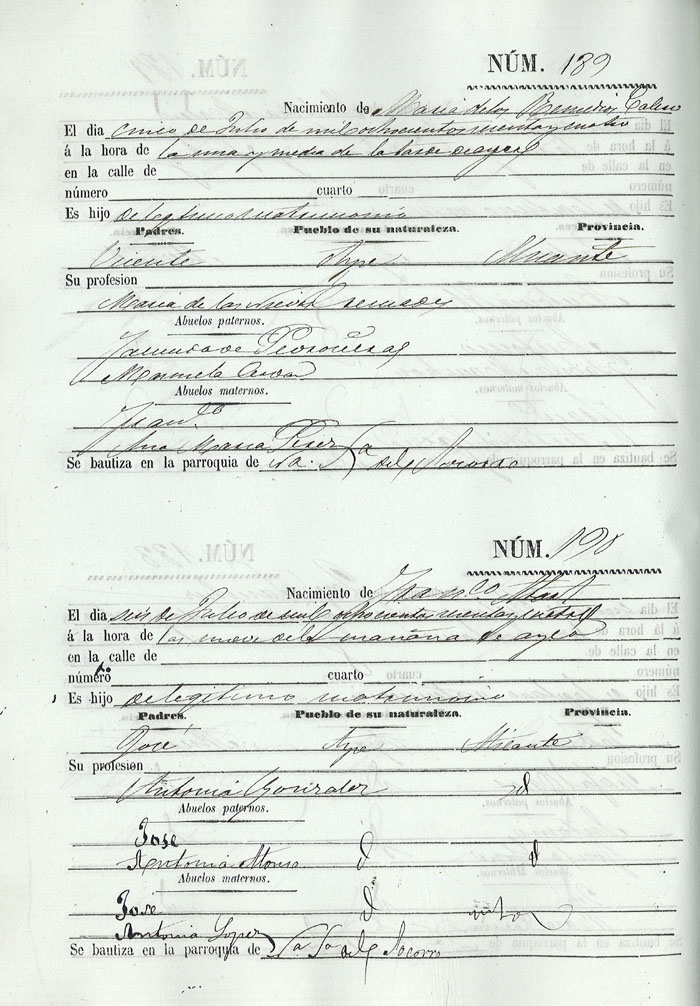 NÚM. 189
Nacimiento de Maria de los Remedios
El dia cinco de Julio de mil ochocientos sesenta y cuatro
á la hora de la una y media de la tarde de ayer
en la calle de
número cuarto
Es hijo de legitimo matrimonio
Padres. Pueblo de su naturaleza. Provincia.
Vicente Aspe Alicante
Su profesion
Maria de las Nieves
Abuelos paternos.
de
Manuela
Abuelos maternos.
Juan
Ana Maria Perez
Se bautiza en la parroquia de Sa. del Socorro
NÚM. 190
Nacimiento de Franco
El dia seis de Julio de mil ochocientos sesenta y cuatro
á la hora de las nueve de la mañana de ayer
en la calle de
número cuarto
Es hijo de legitimo matrimonio
Padres. Pueblo de su naturaleza. Provincia.
José Aspe Alicante
Su profesion
Antonia Gonzalez id
Abuelos paternos.
Jose
Antonia Alonso d d
Abuelos maternos.
José d
Antonia Lopez
Se bautiza en la parroquia de Sa del Socorro